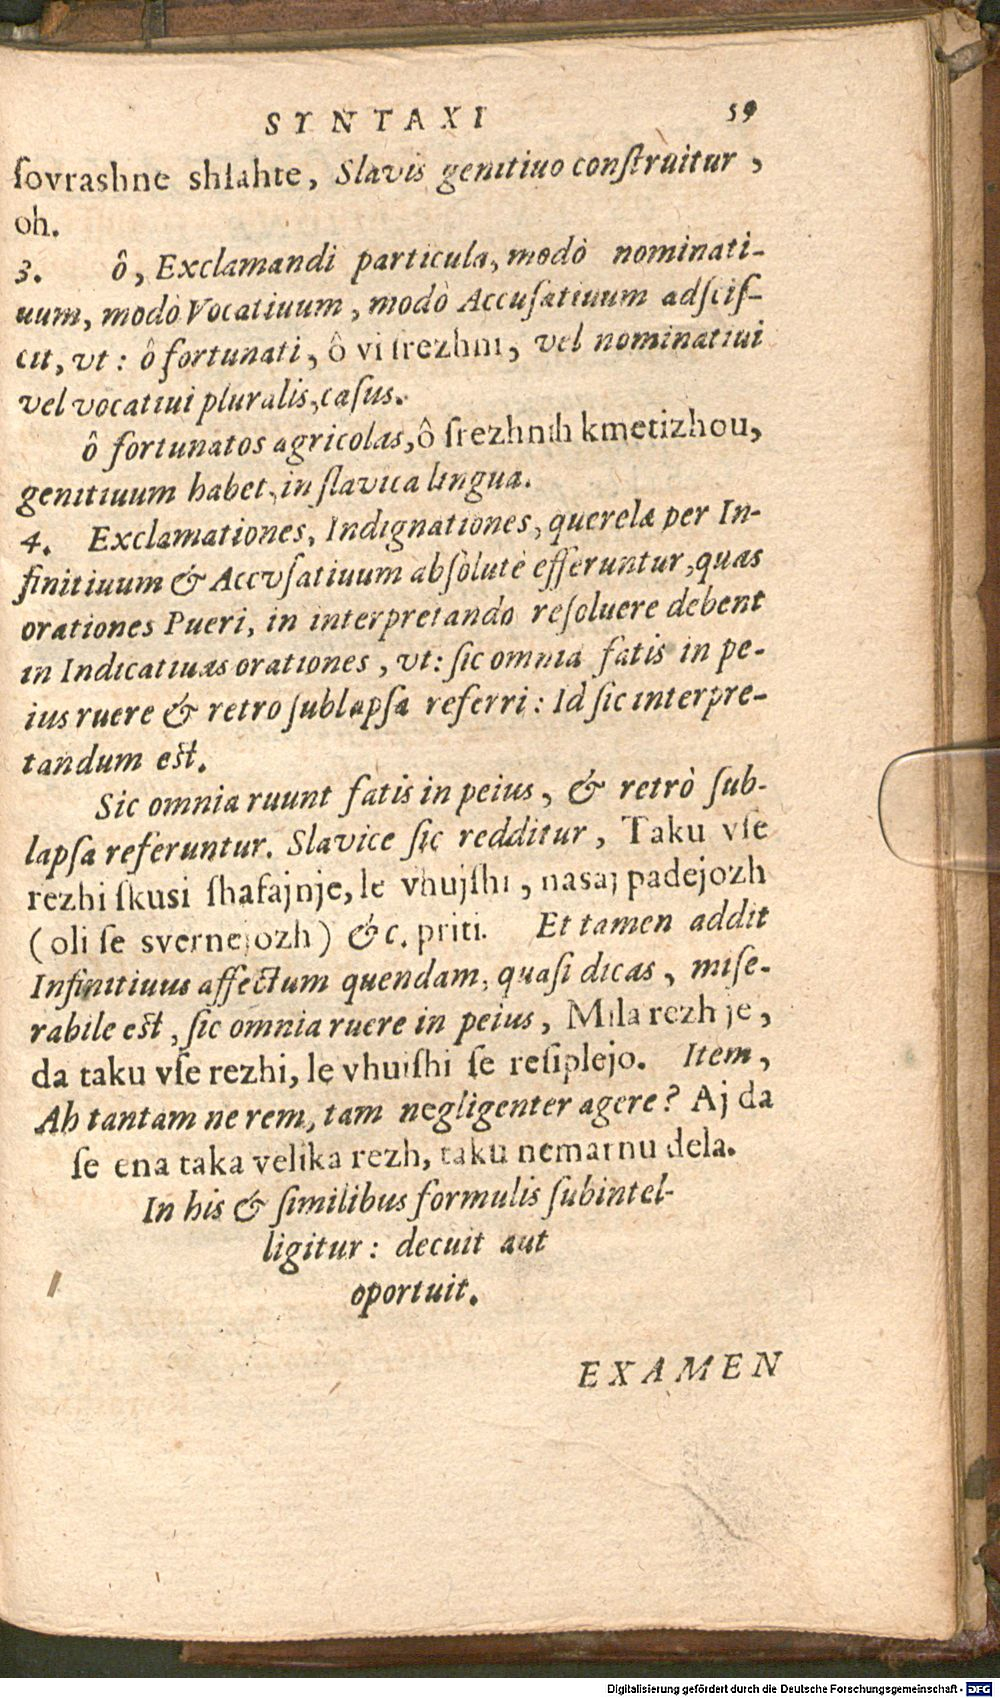 SYNTAXI 59
ſovrashne shlahte, Slavis genitiuo conſtruitur,
oh.
3. ô, Exclamandi particula, modò nominati-
uum, modò Vocatiuum, modò Accuſatiuum adſciſ-
cit, vt: ô fortunati, ô vi ſrezhni, vel nominatiui
vel vocatiui pluralis, caſus.
ô fortunatos agricolas, ô ſrezhnih kmetizhou,
genitiuum habet, in ſlavica lingua.
4. Exclamationes, Indignationes, querelæ per In-
finitiuum & Accvſatiuum abſòlutè efferuntur, quas
orationes Pueri, in interpretando reſoluere debent
in Indicatiuas orationes, vt: ſic omnia fatis in pe-
ius ruere & retro ſublapſa referri: Id ſic interpre-
tandum eſt.
Sic omnia ruunt fatis in peius, & retrò ſub-
lapſa referuntur. Slavice ſic redditur, Taku vſe
rezhi ſkusi shafajnje, le vhujſhi, nasaj padejozh
(oli ſe svernejozh) &c. priti. Et tamen addit
Infinitiuus affectum quendam, quaſi dicas, miſe-
rabile eſt, ſic omnia ruere in peius, Mila rezh je,
da taku vſe rezhi, le vhuiſhi ſe reſiplejo. Item,
Ah tantam ne rem, tam negligenter agere? Aj da
ſe ena taka velika rezh, taku nemarnu dela.
In his & ſimilibus formulis ſubintel-
ligitur: decuit aut
oportuit.
EXAMEN
Digitalisierung gefördert durch die Deutsche Forschungsgemeinschaft - DFG